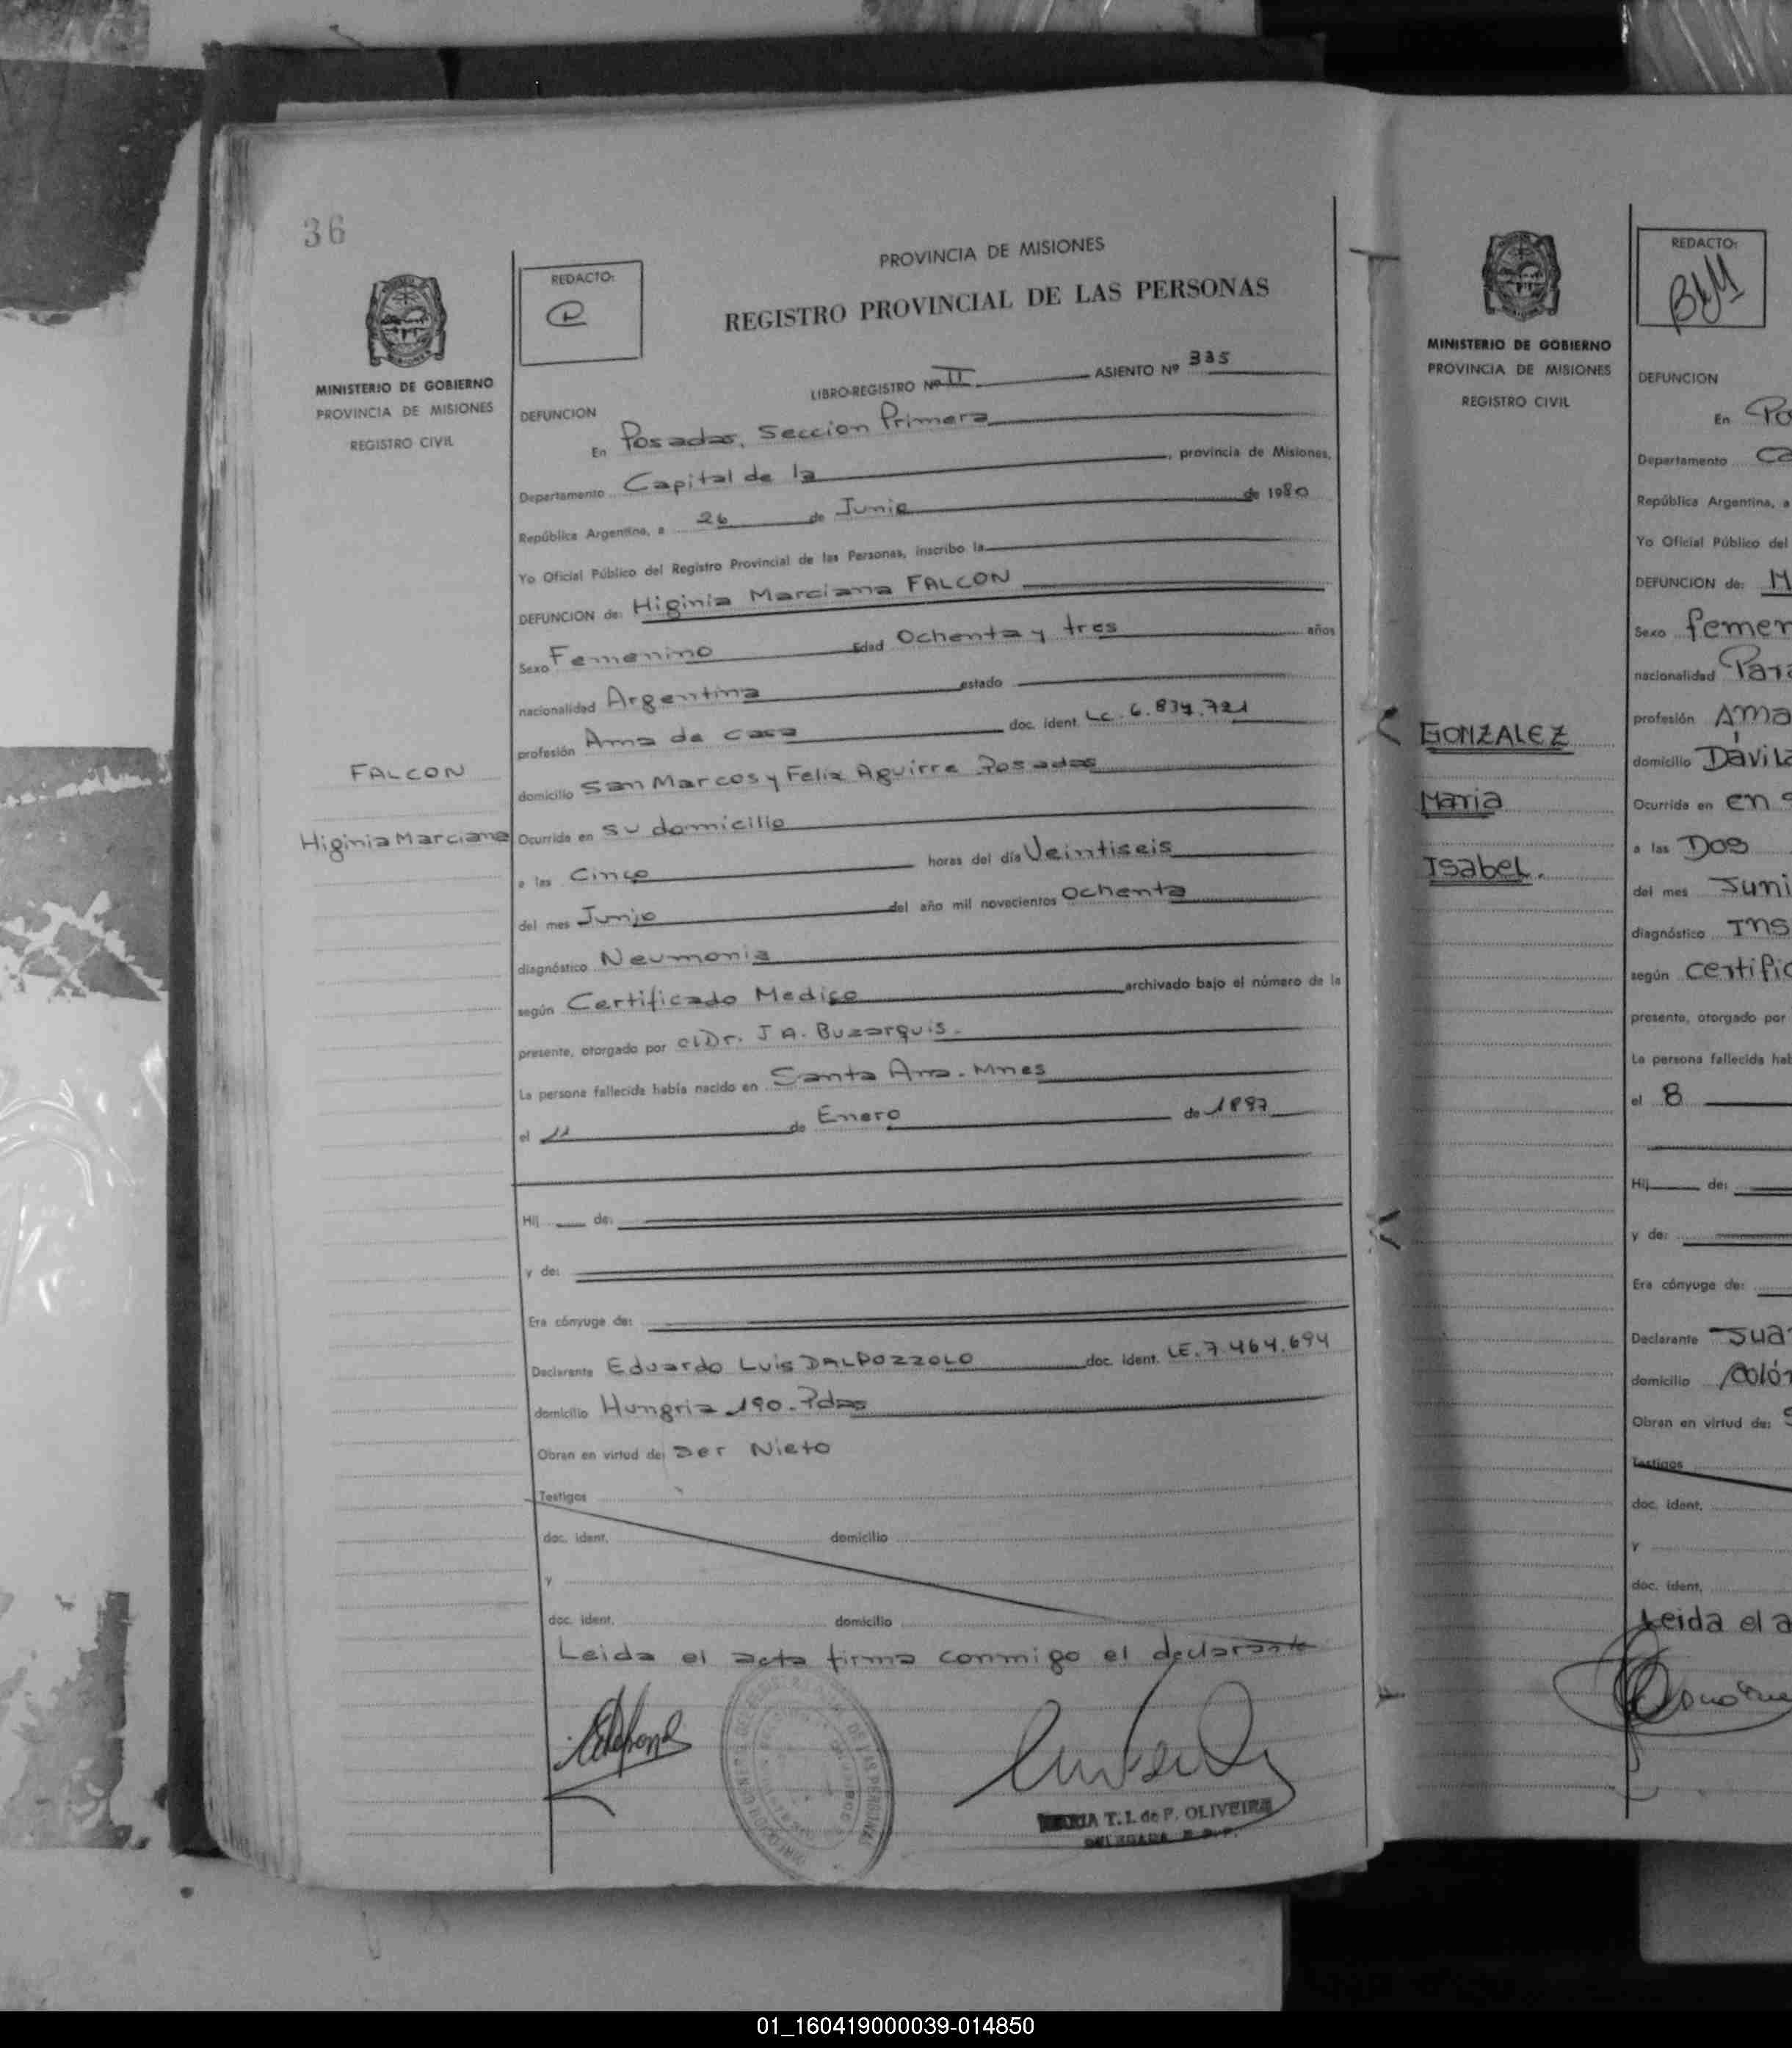 36
MINISTERIO DE GOBIERNO
PROVINCIA DE MISIONES
REGISTRO CIVIL
REDACTO:
PROVINCIA DE MISIONES
REGISTRO PROVINCIAL DE LAS PERSONAS
LIBRO-REGISTRO Nº II ASIENTO Nº 335
DEFUNCION
En Posadas, Seccion Primera
Departamento Capital de la, provincia de Misiones,
República Argentina, a 26 de Junio de 1980
Yo Oficial Público del Registro Provincial de las Personas, inscribo la
DEFUNCION de: Higinia Marciana FALCON
Sexo Femenino Edad Ochenta y tres años
nacionalidad Argentina estado
profesión Ama de casa doc. ident. LC. 6.834.721
FALCON
domicilio San Marcos y Felix Aguirre Posadas
Higinia Marciana
Ocurrida en su domicilio
a las Cinco horas del día Veintiseis
del mes Junio del año mil novecientos Ochenta
diagnóstico Neumonia
según Certificado Medico archivado bajo el número de la
presente, otorgado por el Dr. J A. Buzarquis.
La persona fallecida había nacido en Santa Ana. Mnes
el 11 de Enero de 1897
Hij de:
y de:
Era cónyuge de:
Declarante Eduardo Luis DALPOZZOLO doc. ident. LE. 7.464.694
domicilio Hungria 190. Pdas
Obran en virtud de: Ser Nieto
Testigos
doc. ident. domicilio
y
doc. ident. domicilio
Leida el acta firma conmigo el declarante
MARIA T. I. de P. OLIVEIRA
DELEGADA R. P. P.
MINISTERIO DE GOBIERNO
PROVINCIA DE MISIONES
REGISTRO CIVIL
GONZALEZ
Maria
Isabel.
REDACTO:
BLM
DEFUNCION
En Po
Departamento Ca
República Argentina, a
Yo Oficial Público del
DEFUNCION de: M
Sexo femen
nacionalidad Para
profesión Ama
domicilio Dávila
Ocurrida en en s
a las Dos
del mes Juni
diagnóstico INS
según certific
presente, otorgado por
La persona fallecida hab
el 8
Hij de:
y de:
Era cónyuge de:
Declarante Jua
domicilio Colón
Obran en virtud de: S
Testigos
doc. ident.
y
doc. ident.
Leida el a
01_160419000039-014850